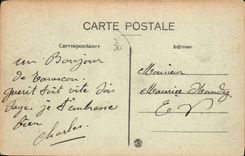 CARTE POSTALE
Correspondance
Adresse
30
un Bonjour
de Tarascon.
guerit soit vite dis
Je t'embrasse
bien
Charles
Monsieur
Maurice
E V